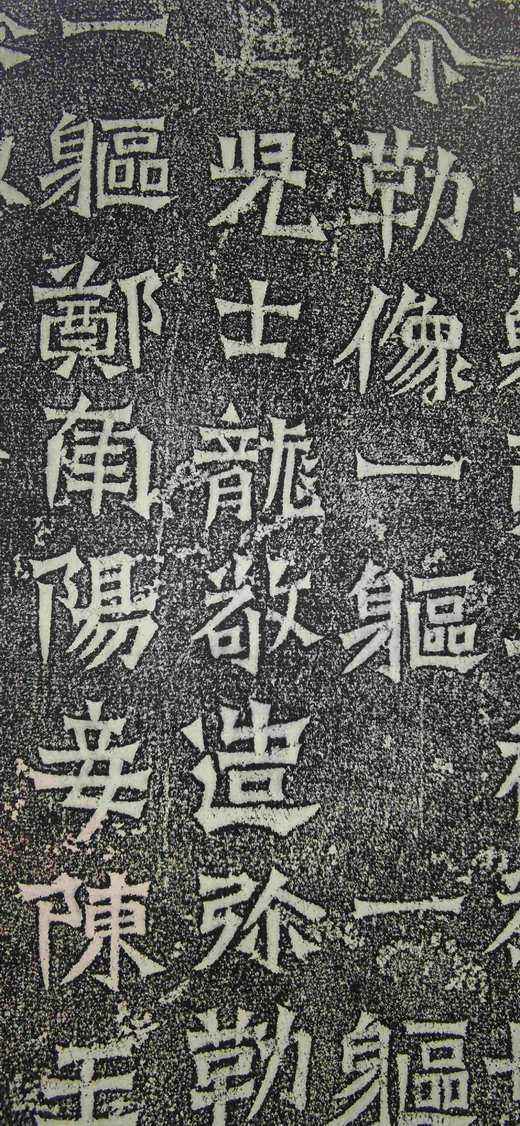 勒像一軀一軀
児士龍敬造弥勒
一軀鄭南陽妾陳王